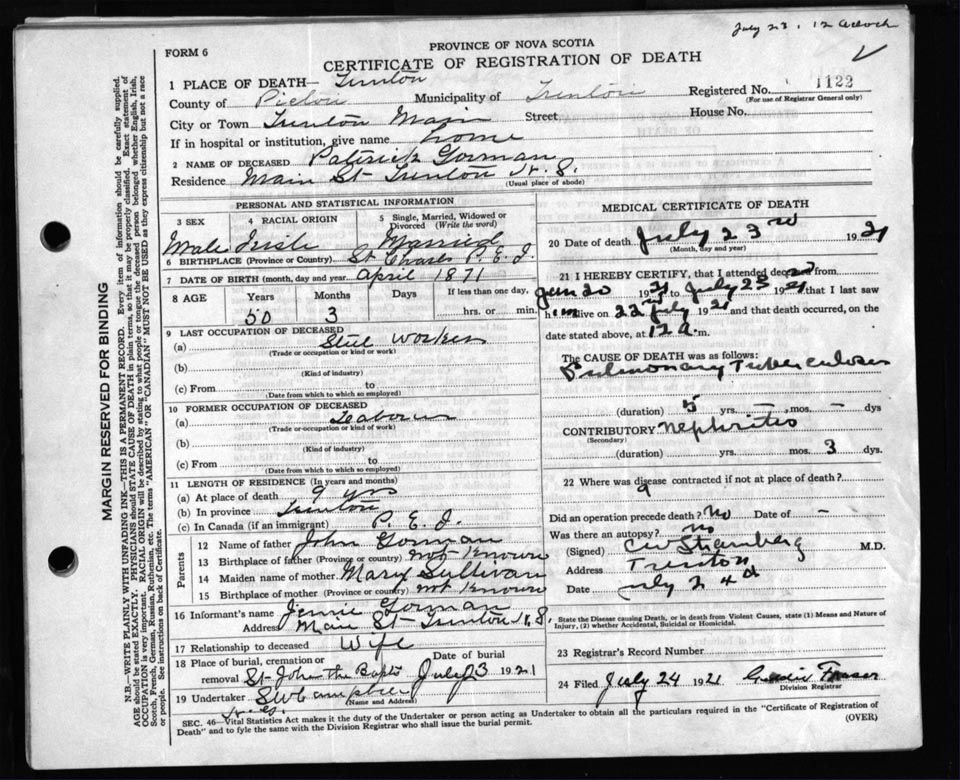 July 23, 12 Oclock
FORM 6
PROVINCE OF NOVA SCOTIA
CERTIFICATE OF REGISTRATION OF DEATH
1 PLACE OF DEATH— Trenton
Registered No. 1122
(For use of Registrar General only)
County of Pictou Municipality of Trenton
City or Town Trenton Main Street House No.
If in hospital or institution, give name home
2 NAME OF DECEASED Paterick Gorman
Residence Main St Trenton N.S.
(Usual place of abode)
PERSONAL AND STATISTICAL INFORMATION
3 SEX 4 RACIAL ORIGIN 5 Single, Married, Widowed or Divorced (Write the word)
Male Irish Married
6 BIRTHPLACE (Province or Country) St Charles P.E.I.
7 DATE OF BIRTH (month, day and year) April 1871
8 AGE Years Months Days If less than one day,
50 3 hrs. or min.
9 LAST OCCUPATION OF DECEASED
(a) Steel Worker
(Trade or occupation or kind of work)
(b)
(Kind of industry)
(c) From to
(Date from which to which so employed)
10 FORMER OCCUPATION OF DECEASED
(a) Leabourer
(Trade or occupation or kind of work)
(b)
(Kind of industry)
(c) From to
(Date from which to which so employed)
11 LENGTH OF RESIDENCE (In years and months)
(a) At place of death 9 yrs
(b) In province Trenton
(c) In Canada (if an immigrant) P.E.I.
Parents
12 Name of father John Gorman
13 Birthplace of father (Province or country) not Known
14 Maiden name of mother Mary Sullivan
15 Birthplace of mother (Province or country) not Known
16 Informant's name Jennie Gorman
Address Main St Trenton N.S
17 Relationship to deceased Wife
18 Place of burial, cremation or removal St John the Bapts Date of burial July 23 1921
19 Undertaker SW Campbell
(Name and Address)
MEDICAL CERTIFICATE OF DEATH
20 Date of death July 23rd 1921
(Month, day and year)
21 I HEREBY CERTIFY, that I attended deceased from
Jan 20 1921 to July 23 1921 that I last saw
him alive on 22nd July 1921 and that death occurred, on the
date stated above, at 12 a.m.
The CAUSE OF DEATH was as follows:
Pulmonary Tuberculosis
(duration) 5 yrs. — mos. — dys
CONTRIBUTORY Nephritis
(Secondary)
(duration) yrs. — mos. 3 dys.
22 Where was disease contracted if not at place of death?
Did an operation precede death? No Date of —
Was there an autopsy? No
(Signed) M.D.
Address Trenton
Date July 24
State the Disease causing Death, or in death from Violent Causes, state (1) Means and Nature of Injury, (2) whether Accidental, Suicidal or Homicidal.
23 Registrar's Record Number
24 Filed July 24 1921 Fraser
Division Registrar
SEC. 46—Vital Statistics Act makes it the duty of the Undertaker or person acting as Undertaker to obtain all the particulars required in the "Certificate of Registration of
Death" and to fyle the same with the Division Registrar who shall issue the burial permit.
(OVER)
MARGIN RESERVED FOR BINDING
N.B.—WRITE PLAINLY WITH UNFADING INK—THIS IS A PERMANENT RECORD. Every item of information should be carefully supplied.
AGE should be stated EXACTLY. PHYSICIANS should STATE CAUSE OF DEATH in plain terms, so that it may be properly classified. Exact statement of
OCCUPATION is very important. RACIAL ORIGIN will be described by stating to what people or tongue the deceased person belonged whether English, Irish,
Scotch, French, German, Russian, Ruthenian, etc. The terms "AMERICAN" OR "CANADIAN" MUST NOT BE USED as they express citizenship but not a race
or people. See instructions on back of Certificate.